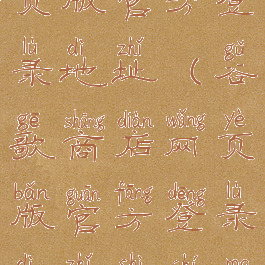 页版官方登
lù dì zhǐ gǔ
录地址（谷
gē shāng diàn wǎng yè
歌商店网页
bǎn guān fāng dēng lù
版官方登录